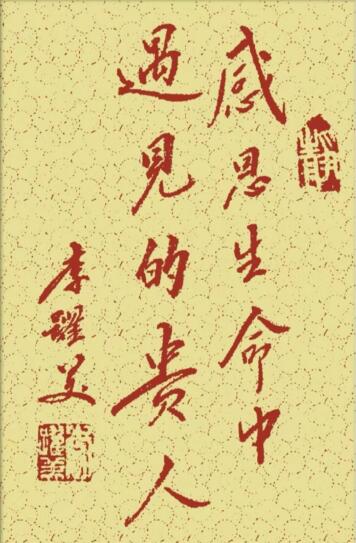 感恩生命中
遇見的貴人
李躍美